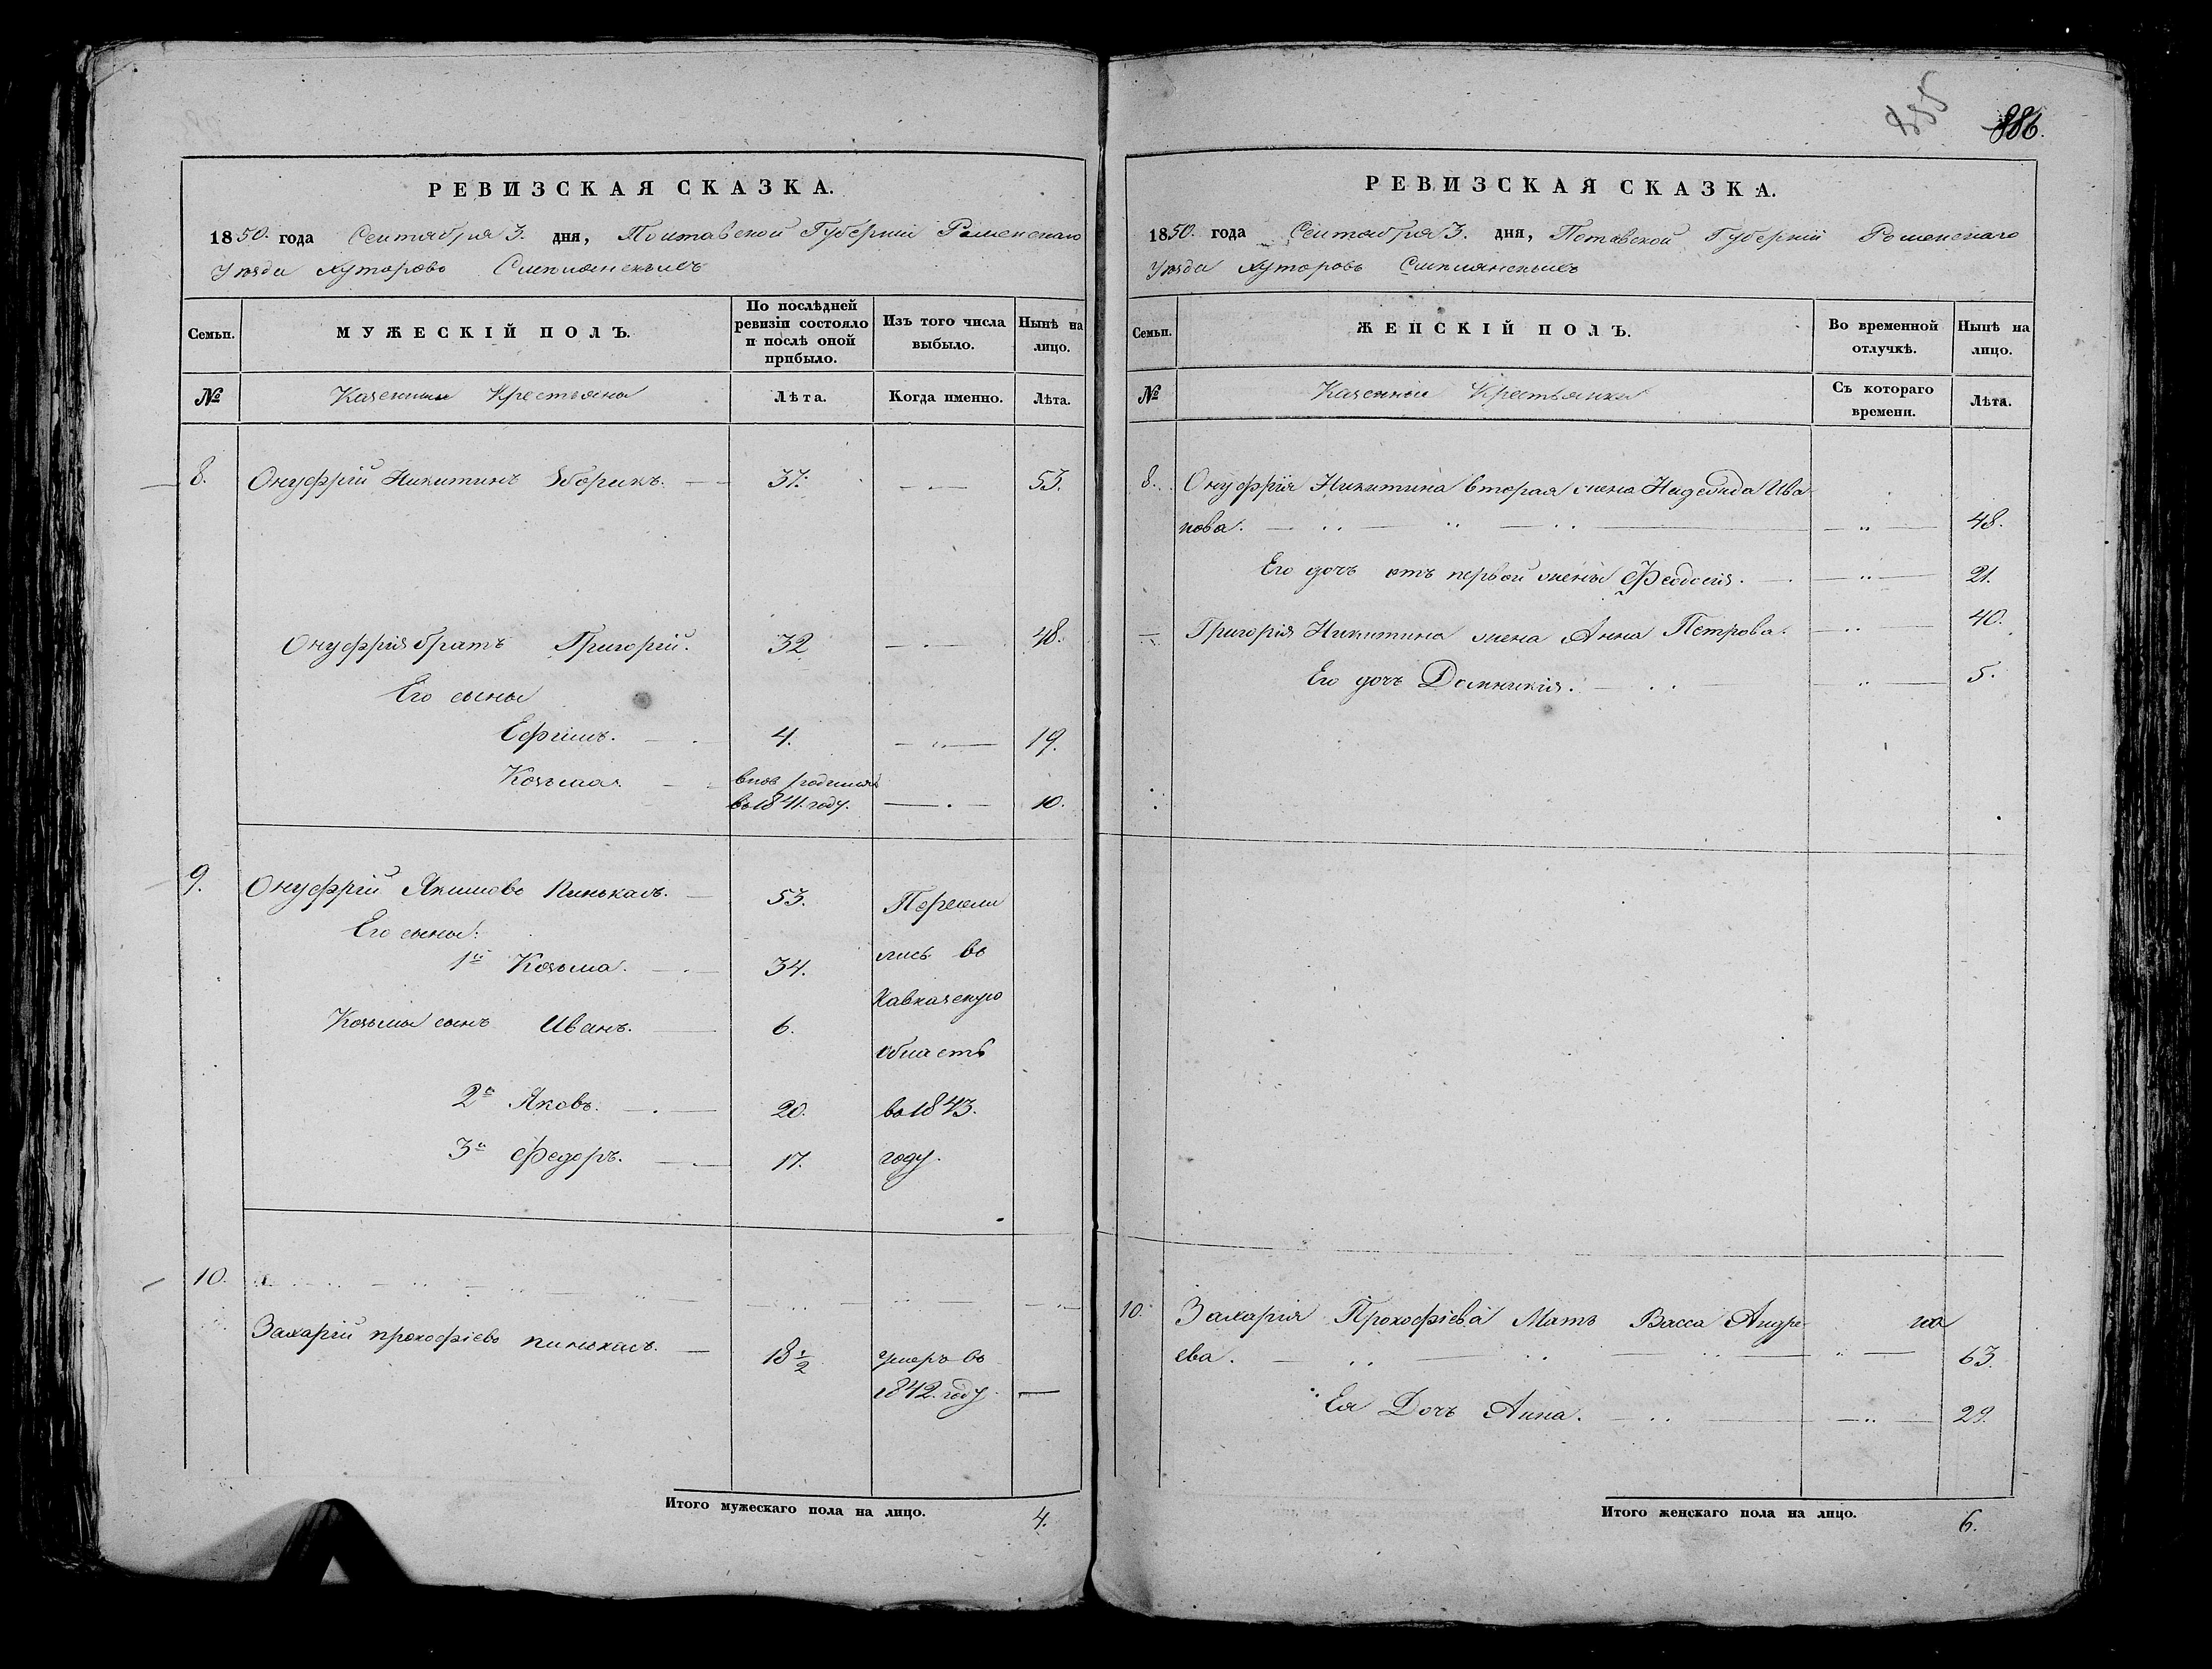 885
886.
РЕВИЗСКАЯ СКАЗКА.
1850. года Сентября 3. дня, Полтавской Губерніи Роменскаго
Уѣзда Хуторовъ
МУЖЕСКІЙ ПОЛЪ.
Семьи.
По послѣдней ревизіи состояло и послѣ оной прибыло.
Изъ того числа выбыло.
Нынѣ на лицо.
№
Казенные Крестьяне
Лѣта.
Когда именно.
Лѣта.
8. Онуфрій Никитинъ 37. 53.
Онуфрія братъ Григорій. 32 48.
Его сыны
Ефимъ. 4. 19.
Козьма. вновь родился
въ 1841. году. 10.
9. Онуфрій Якимовъ Пинькасъ. 53. Пересели
Его сыны:
1й Козьма. 34. лись въ
Кавказскую
Козьмы сынъ Иванъ. 6.
область
2й Яковъ. 20. въ 1843.
3й Федоръ. 17. году.
10.
Захарій Прокофіевъ Пинькасъ. 18½ умеръ въ
1842. году
Итого мужескаго пола на лицо. 4.
РЕВИЗСКАЯ СКАЗКА.
1850. года Сентября 3. дня, Полтавской Губерніи Роменскаго
Уѣзда Хуторовъ
Семьи.
ЖЕНСКІЙ ПОЛЪ.
Во временной отлучкѣ.
Нынѣ на лицо.
№
Казенные Крестьянки
Съ котораго времени.
Лѣта.
8. Онуфрія Никитина вторая жена Надежда Ива-
нова. 48.
Его дочь отъ первой жены Феодосія. 21.
Григорія Никитина жена Анна Петрова. 40.
Его дочь Домникия. 5.
10. Захарія Прокофіева Мать Васса Андре-
ева. 63.
Ея Дочь Анна. 29.
Итого женскаго пола на лицо. 6.